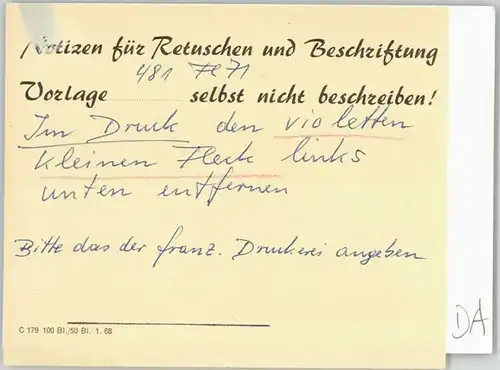 Notizen für Retuschen und Beschriftung
481 Fl 71
Vorlage selbst nicht beschreiben!
Im Druck den violetten
kleinen Fleck links
unten entfernen
Bitte das der franz. Druckerei angeben
C 179 100 Bl./50 Bl. 1. 68
DA